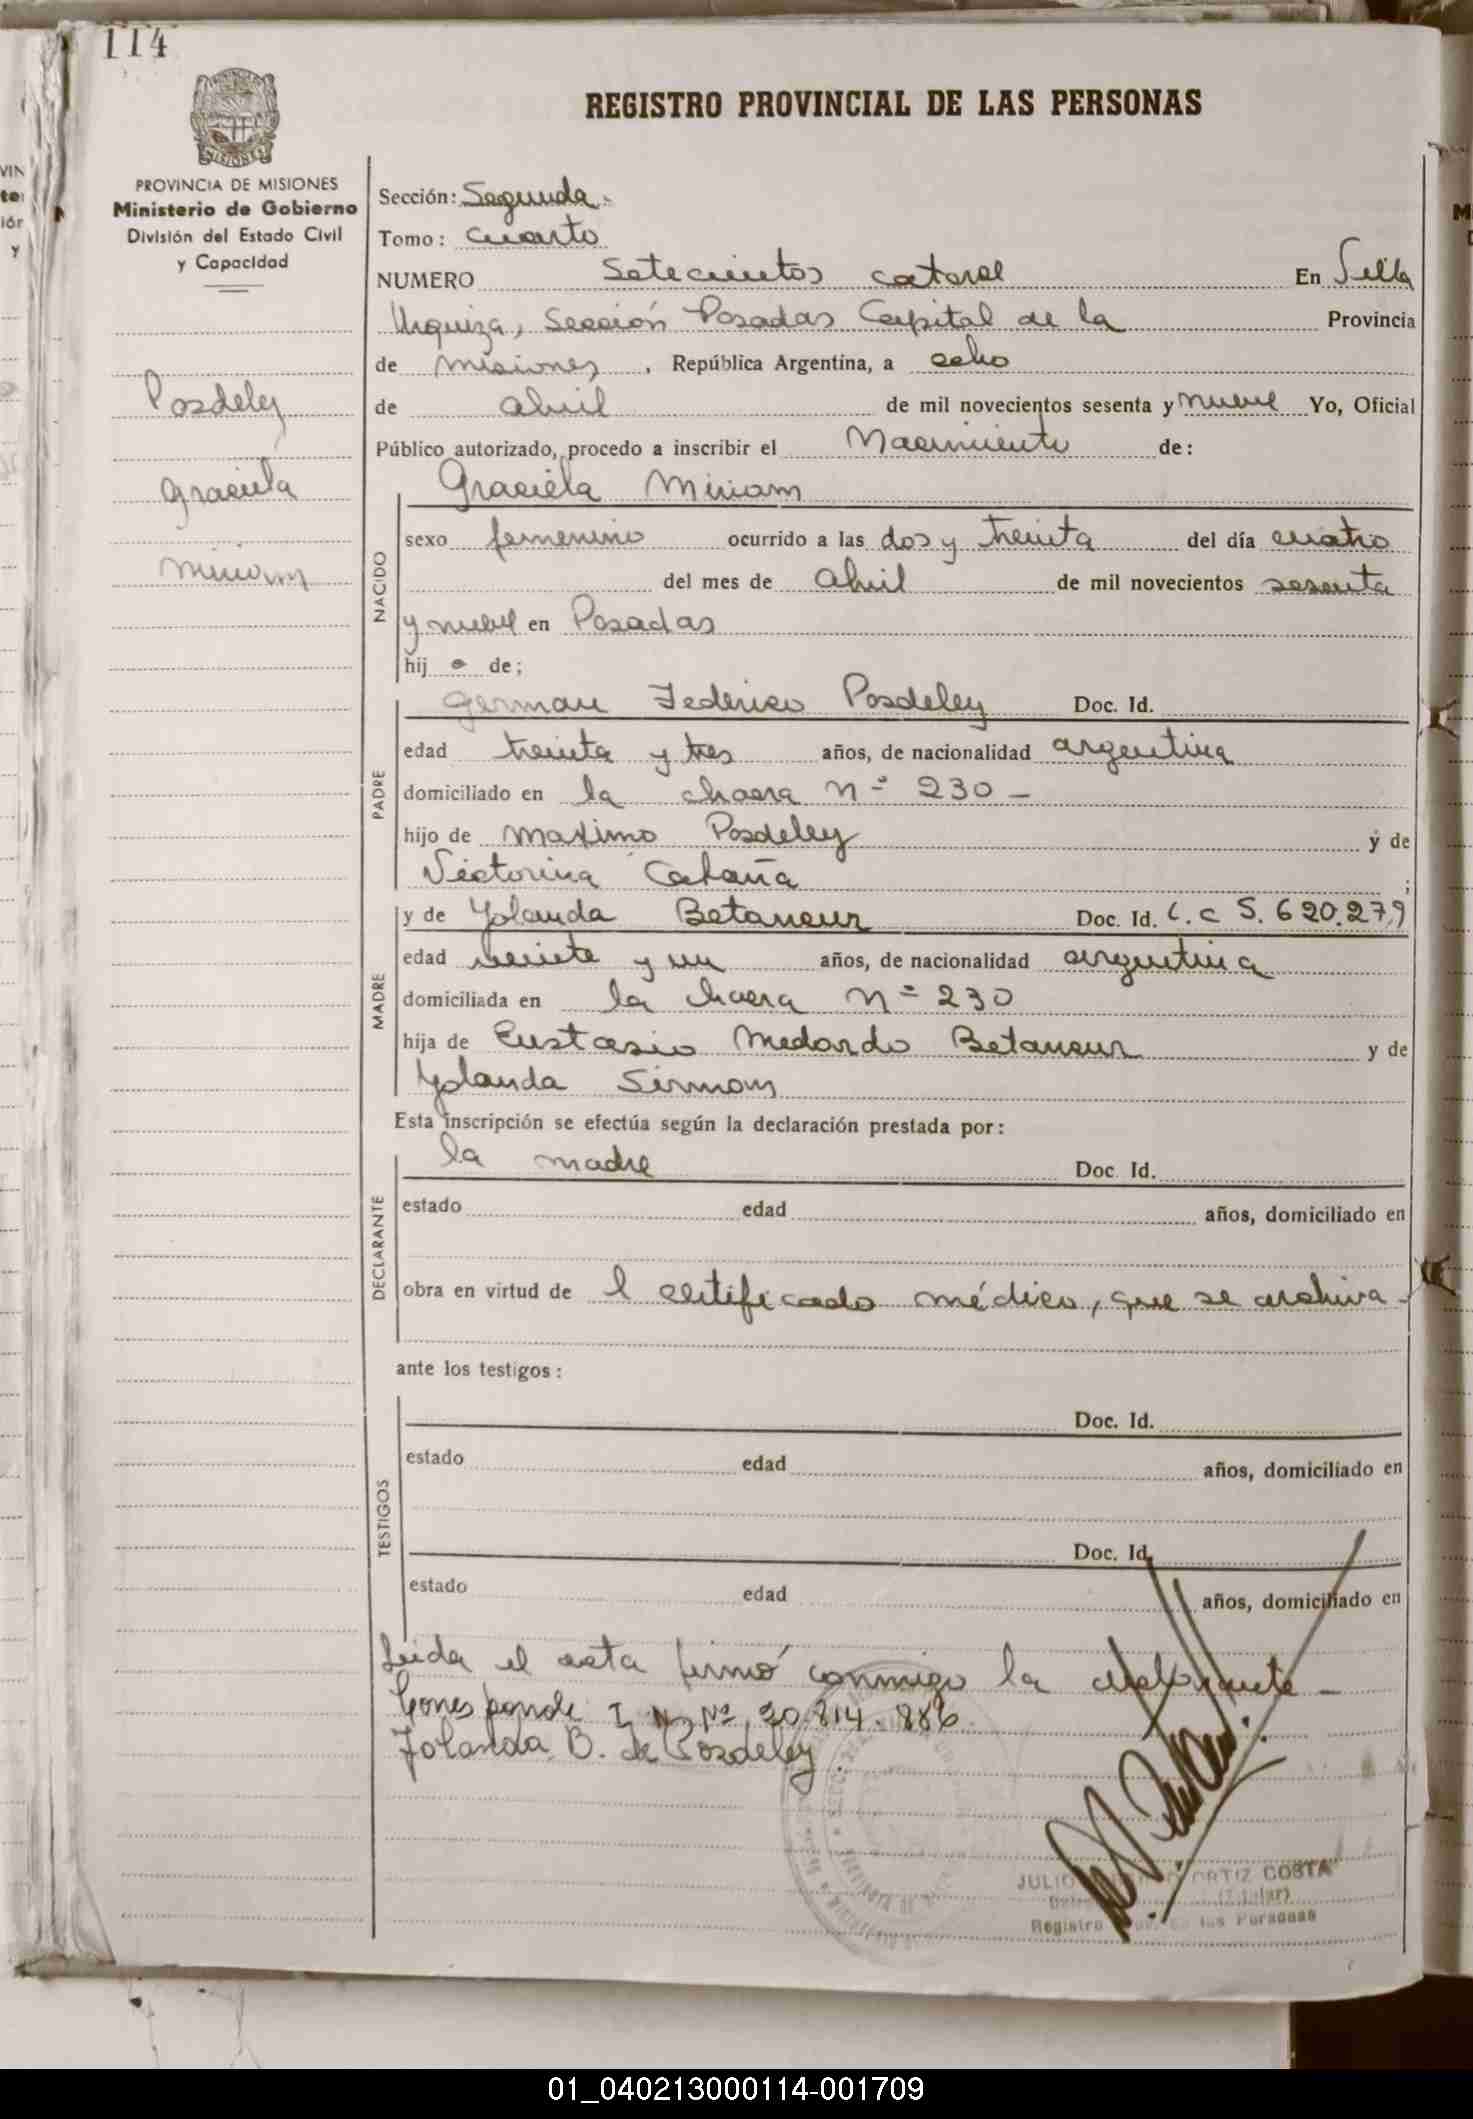 114
REGISTRO PROVINCIAL DE LAS PERSONAS
MISIONES
PROVINCIA DE MISIONES
Ministerio de Gobierno
División del Estado Civil
y Capacidad
Posdeley
Graciela
Miriam
Sección: Segunda.
Tomo: Cuarto
NUMERO Setecientos catorce En Villa
Urquiza, Sección Posadas Capital de la Provincia
de Misiones, República Argentina, a ocho
de abril de mil novecientos sesenta y nueve Yo, Oficial
Público autorizado, procedo a inscribir el Nacimiento de:
Graciela Miriam
NACIDO
sexo femenino ocurrido a las dos y treinta del día cuatro
del mes de abril de mil novecientos sesenta
y nueve en Posadas
hij a de;
PADRE
German Federico Posdeley Doc. Id.
edad treinta y tres años, de nacionalidad argentina
domiciliado en la chacra nº 230 -
hijo de Maximo Posdeley y de
Victorina
;
MADRE
y de Yolanda Betancur Doc. Id. L.C 5.620.279
edad y un años, de nacionalidad argentina
domiciliada en la chacra nº 230
hija de Eustasio Medardo Betancur y de
Yolanda
Esta inscripción se efectúa según la declaración prestada por:
DECLARANTE
la madre Doc. Id.
estado edad años, domiciliado en
obra en virtud de l certificado médico, que se archiva -
ante los testigos:
TESTIGOS
Doc. Id.
estado edad años, domiciliado en
Doc. Id.
estado edad años, domiciliado en
Leida el acta firmó conmigo la declarante -
Corresponde I. Nº 20.814.886
Yolanda B. de Posdeley.
JULIO ORTIZ COSTA
(Titular)
Registro de las Personas
01_040213000114-001709